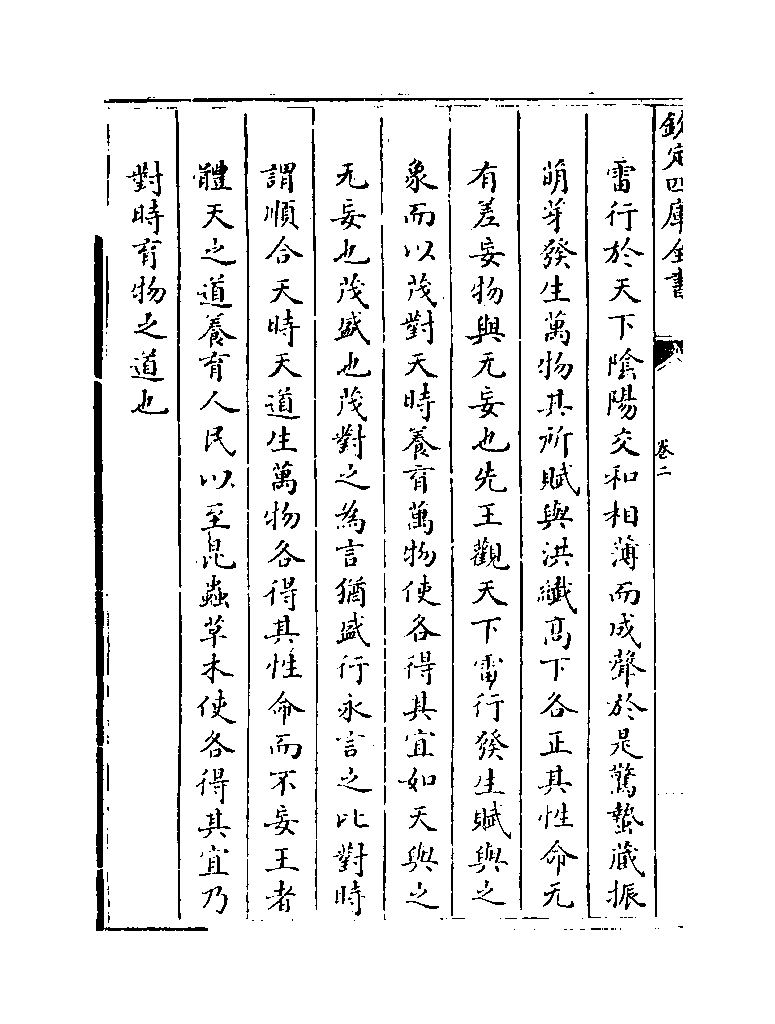 欽定四庫全書
卷二
雷行於天下陰陽交和相薄而成聲於是驚蟄藏振
萌芽發生萬物其所賦與洪纖高下各正其性命无
有差妄物與无妄也先王觀天下雷行發生賦與之
象而以茂對天時養育萬物使各得其宜如天與之
无妄也茂盛也茂對之為言猶盛行永言之比對時
謂順合天時天道生萬物各得其性命而不妄王者
體天之道養育人民以至昆蟲草木使各得其宜乃
對時育物之道也